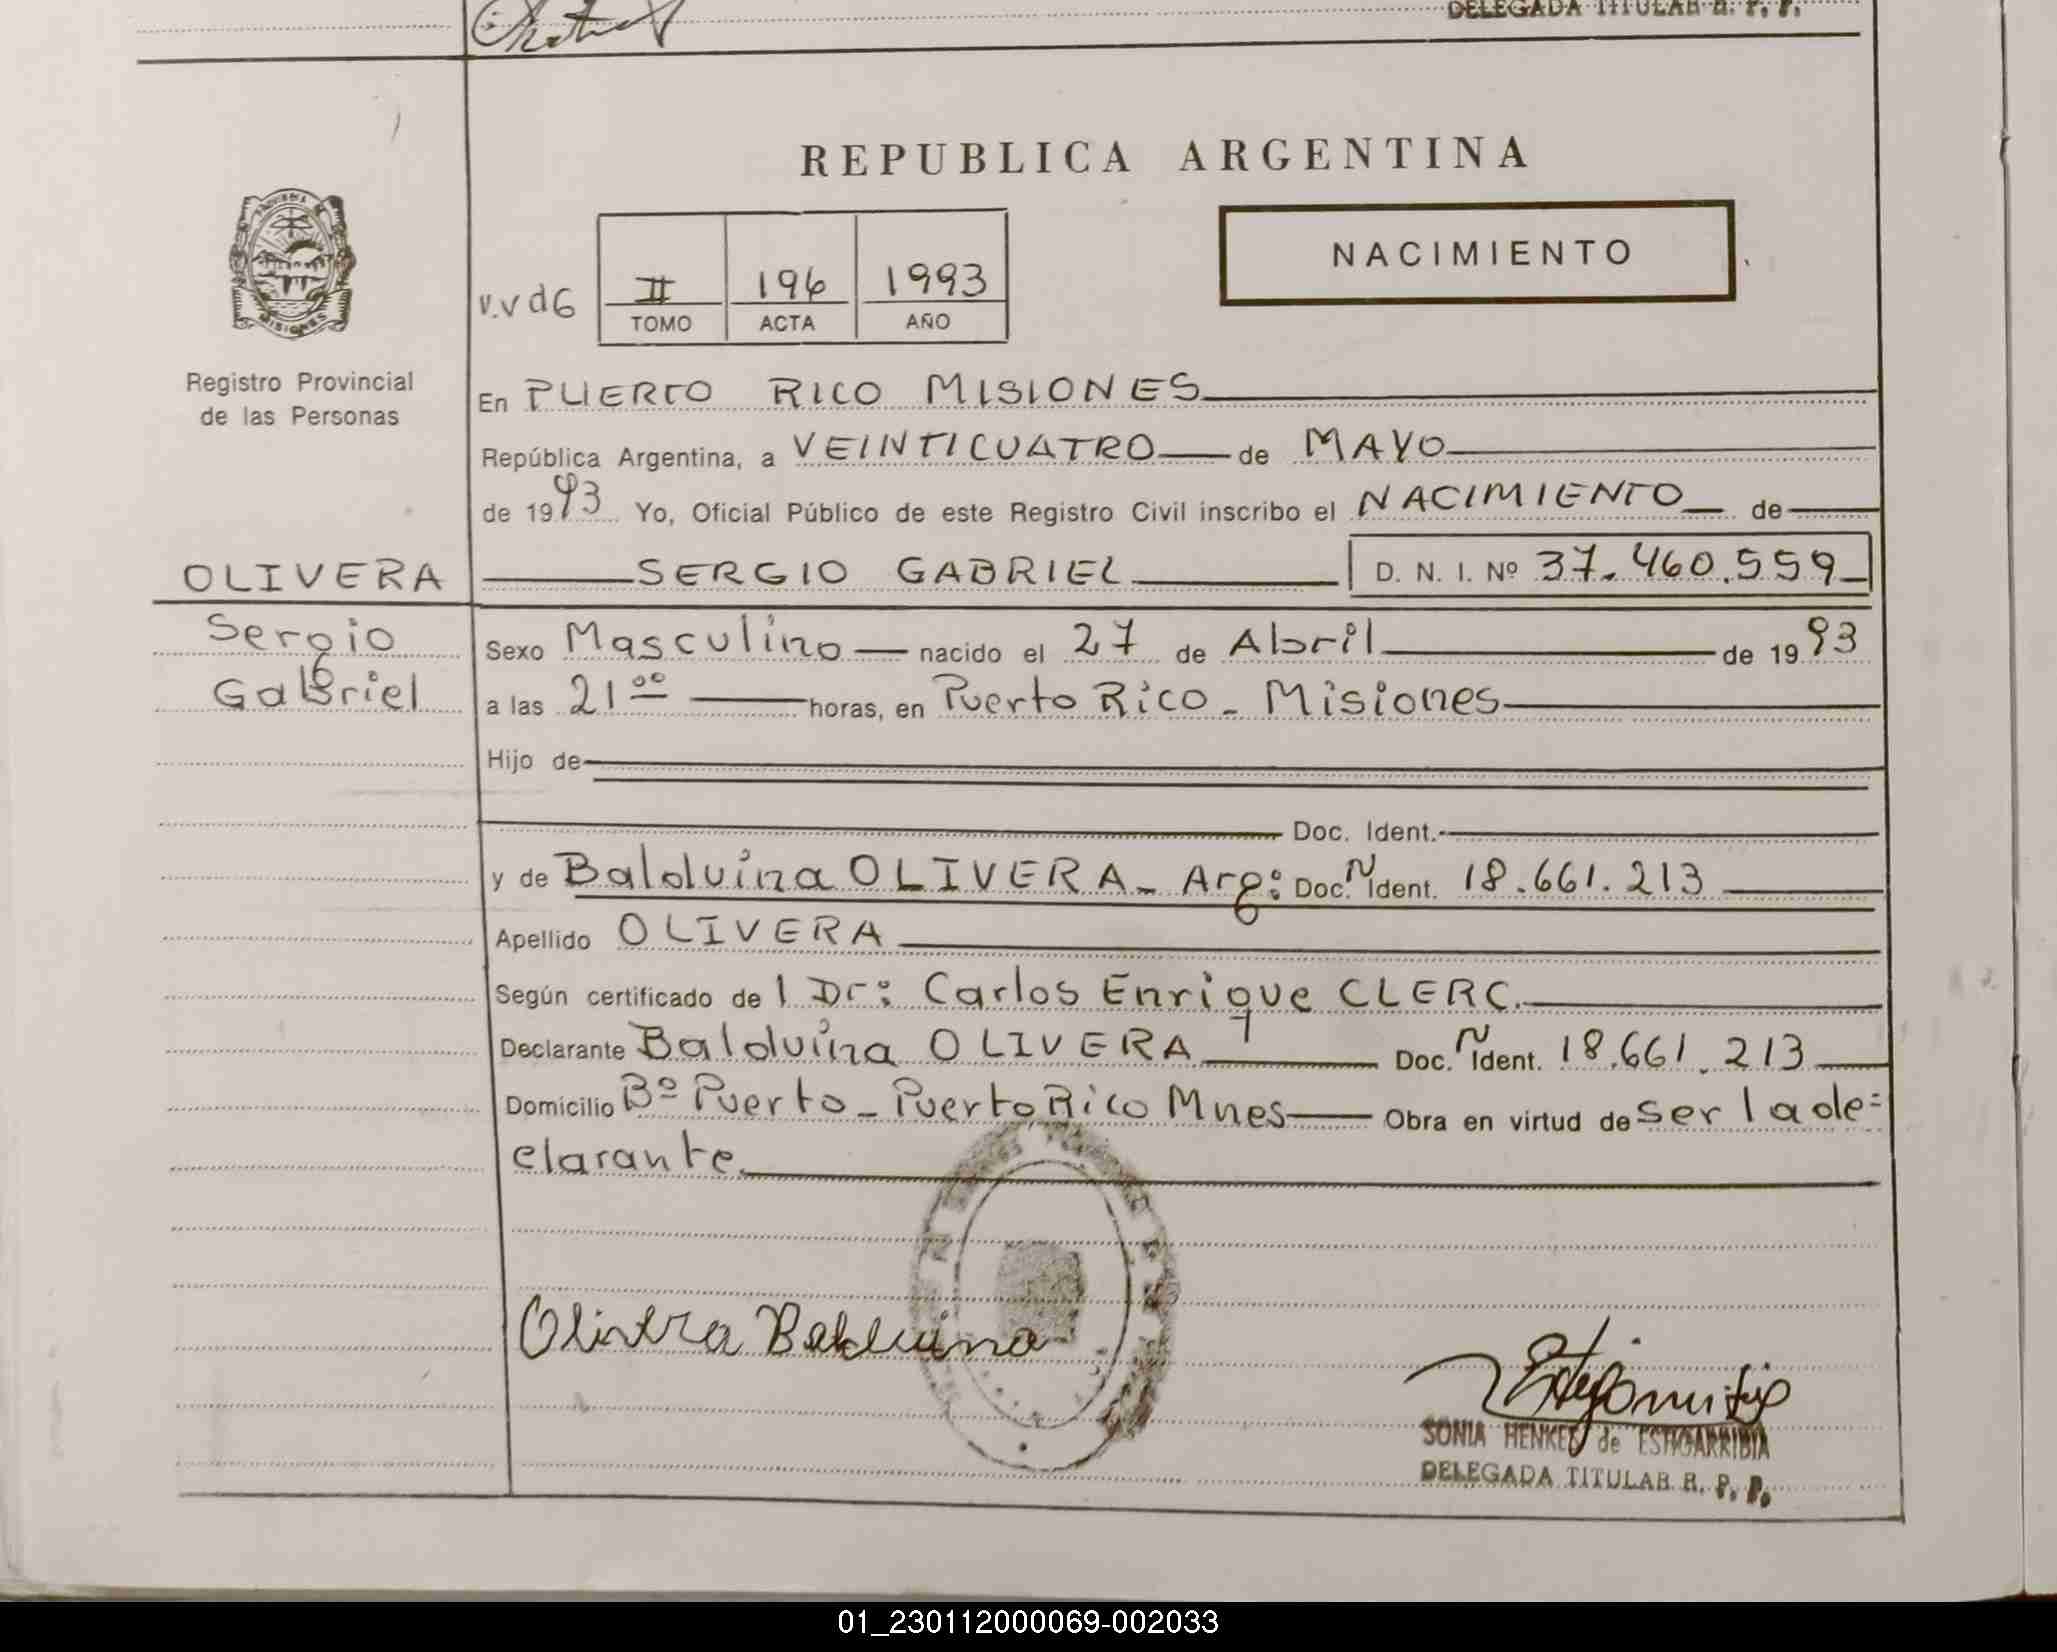 DELEGADA TITULAR R. P. P.
REPUBLICA ARGENTINA
NACIMIENTO
v.v d6
II 196 1993
TOMO ACTA AÑO
MISIONES
Registro Provincial
de las Personas
En PUERTO RICO MISIONES
República Argentina, a VEINTICUATRO de MAYO
de 1993 Yo, Oficial Público de este Registro Civil inscribo el NACIMIENTO de
OLIVERA
SERGIO GABRIEL D. N. I. Nº 37.460.559
Sergio
Gabriel
Sexo Masculino nacido el 27 de Abril de 1993
a las 21 00 horas, en Puerto Rico - Misiones
Hijo de
Doc. Ident.
y de Balduina OLIVERA - Arg: Doc. N Ident. 18.661.213
Apellido OLIVERA
Según certificado de l Dr: Carlos Enrique CLERC.
Declarante Balduina OLIVERA Doc. N Ident. 18.661.213
Domicilio Bº Puerto - Puerto Rico Mnes Obra en virtud de ser la de=
clarante.
Olivera Balduina
SONIA HENKEL de ESTIGARRIBIA
DELEGADA TITULAR R. P. P.
01_230112000069-002033